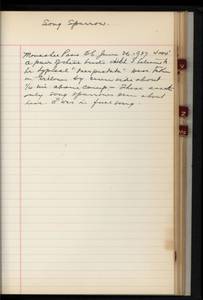 Song Sparrow.
Monashee Pass B.C. June 26, 1927 4000'
A pair of these birds which I believe to
be typical "inexpectata" were taken
in willows by river side about
½ mi above camp — These are the
only song sparrows seen about
here. ♂ was in full song.